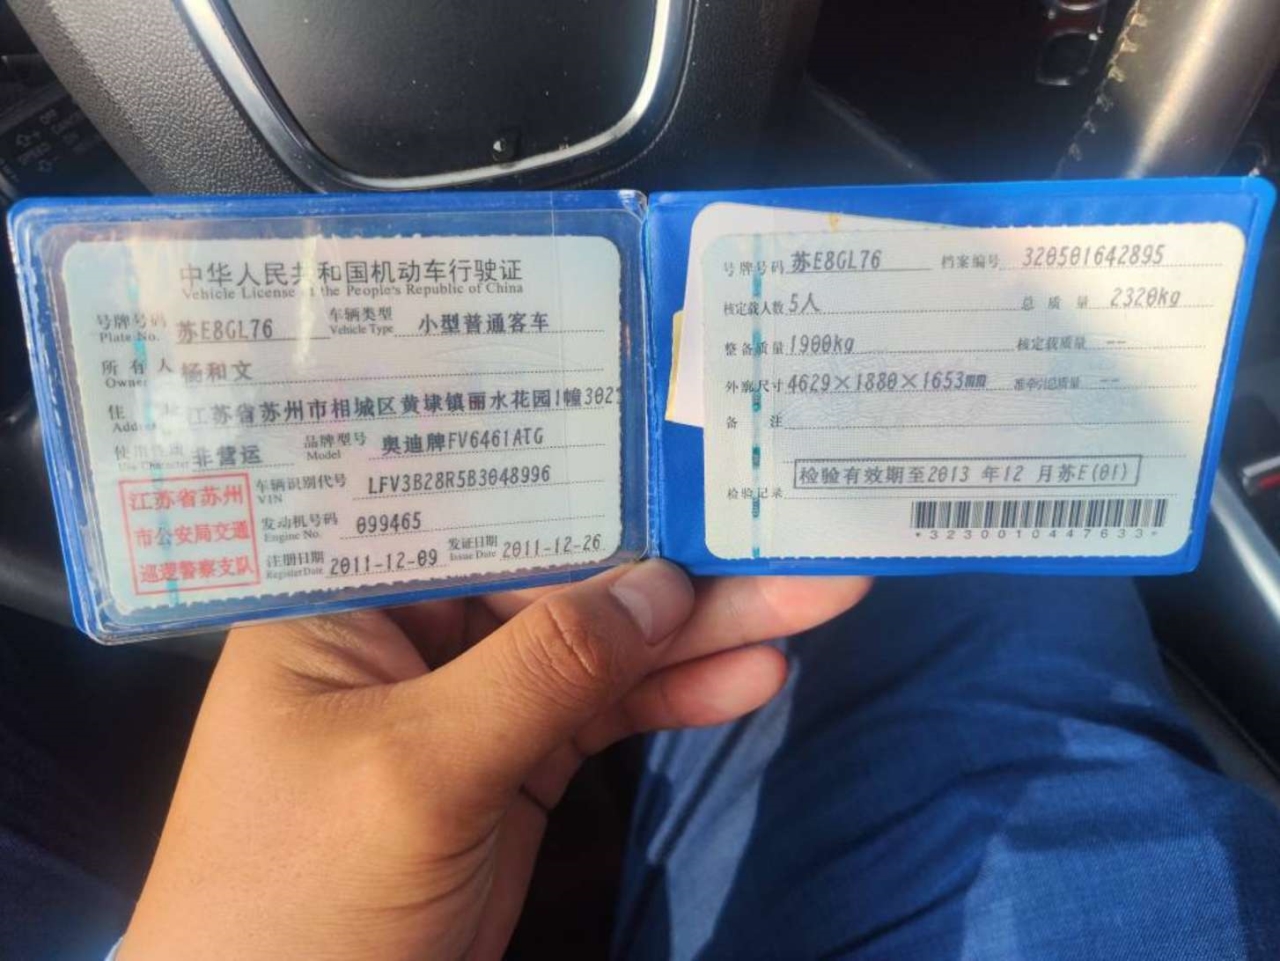 中华人民共和国机动车行驶证
Vehicle License of the People's Republic of China
号牌号码 苏E8GL76 车辆类型 小型普通客车
Plate No. Vehicle Type
所有人 杨和文
Owner
住址 江苏省苏州市相城区黄埭镇丽水花园1幢302
Address
使用性质 非营运 品牌型号 奥迪牌FV6461ATG
Use Character Model
车辆识别代号 LFV3B28R5B3048996
VIN
发动机号码 099465
Engine No.
注册日期 2011-12-09 发证日期 2011-12-26
Register Date Issue Date
江苏省苏州
市公安局交通
巡逻警察支队
号牌号码 苏E8GL76 档案编号 320501642895
核定载人数 5人 总质量 2320kg
整备质量 1900kg 核定载质量 --
外廓尺寸 4629×1880×1653mm 准牵引总质量 --
备注
检验有效期至2013年12月苏E(01)
检验记录
*3230010447633*